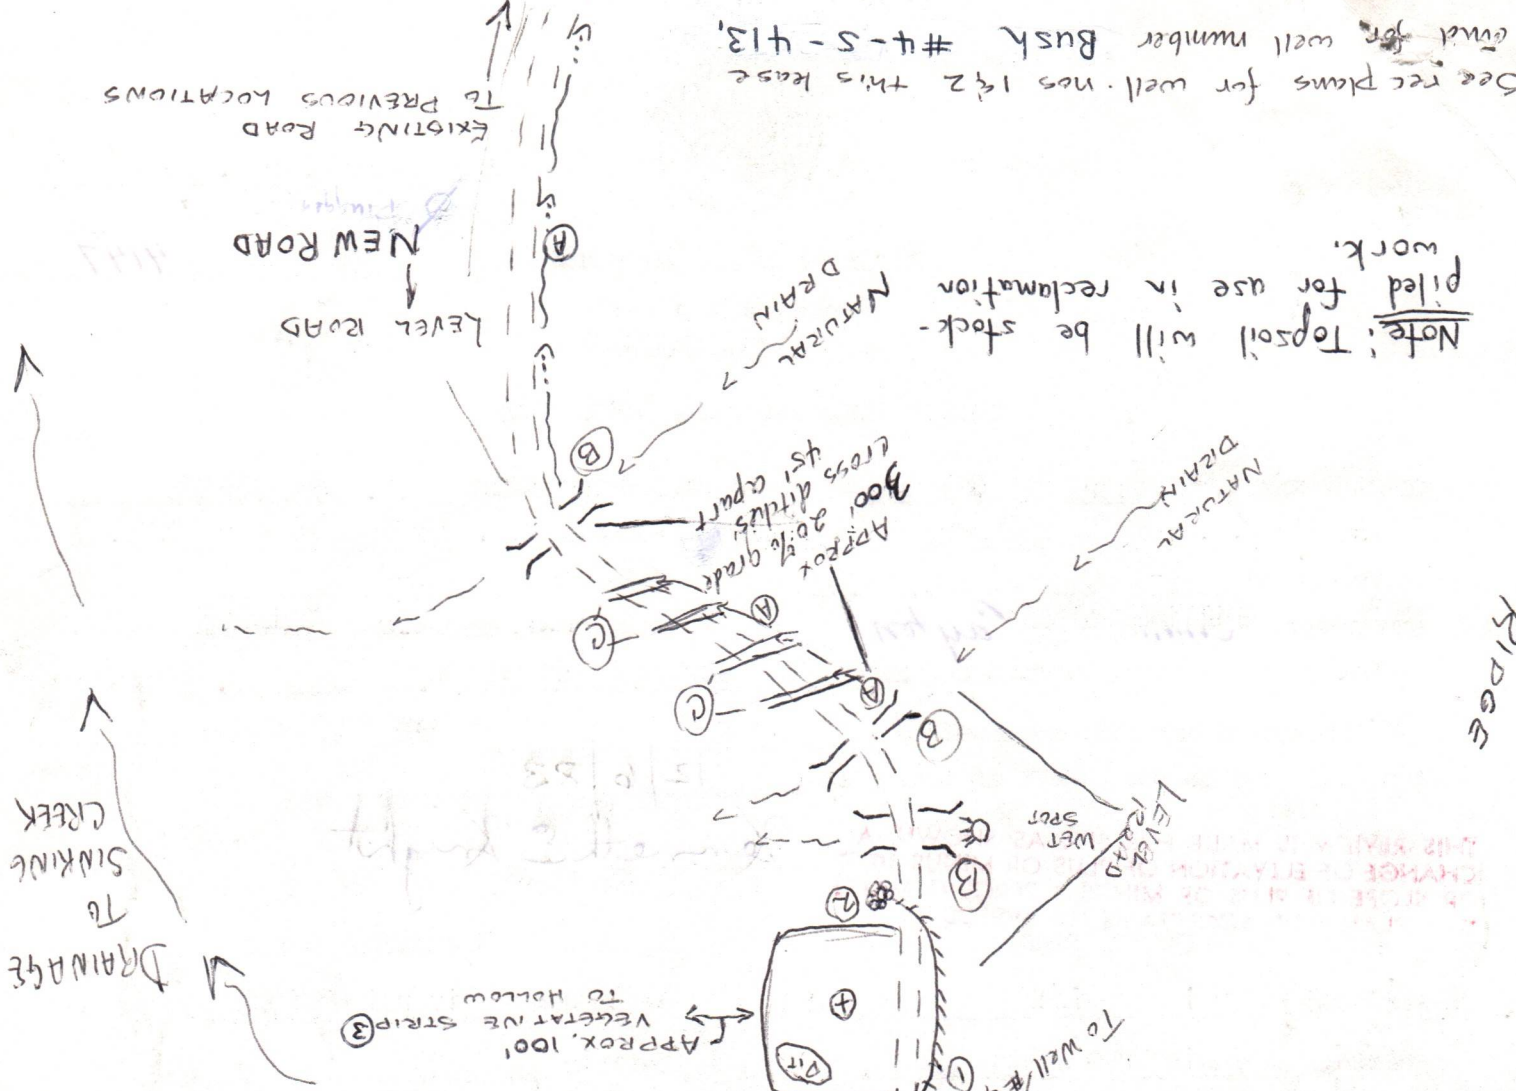 To Well #
1
PIT
+
APPROX. 100'
VEGETATIVE STRIP 3
TO HOLLOW
DRAINAGE
TO
SINKING
CREEK
2
B
WET
SPOT
LEVEL
ROAD
RIDGE
B
A
C
C
A
APPROX
300' 20% grade
cross ditches
45' apart
NATURAL
DRAIN
B
NATURAL
DRAIN
Note: Topsoil will be stock-
piled for use in reclamation
work.
LEVEL ROAD
NEW ROAD
A
EXISTING ROAD
TO PREVIOUS LOCATIONS
See rec plans for well nos 1 & 2 this lease
and for well number Bush #4-S-413.